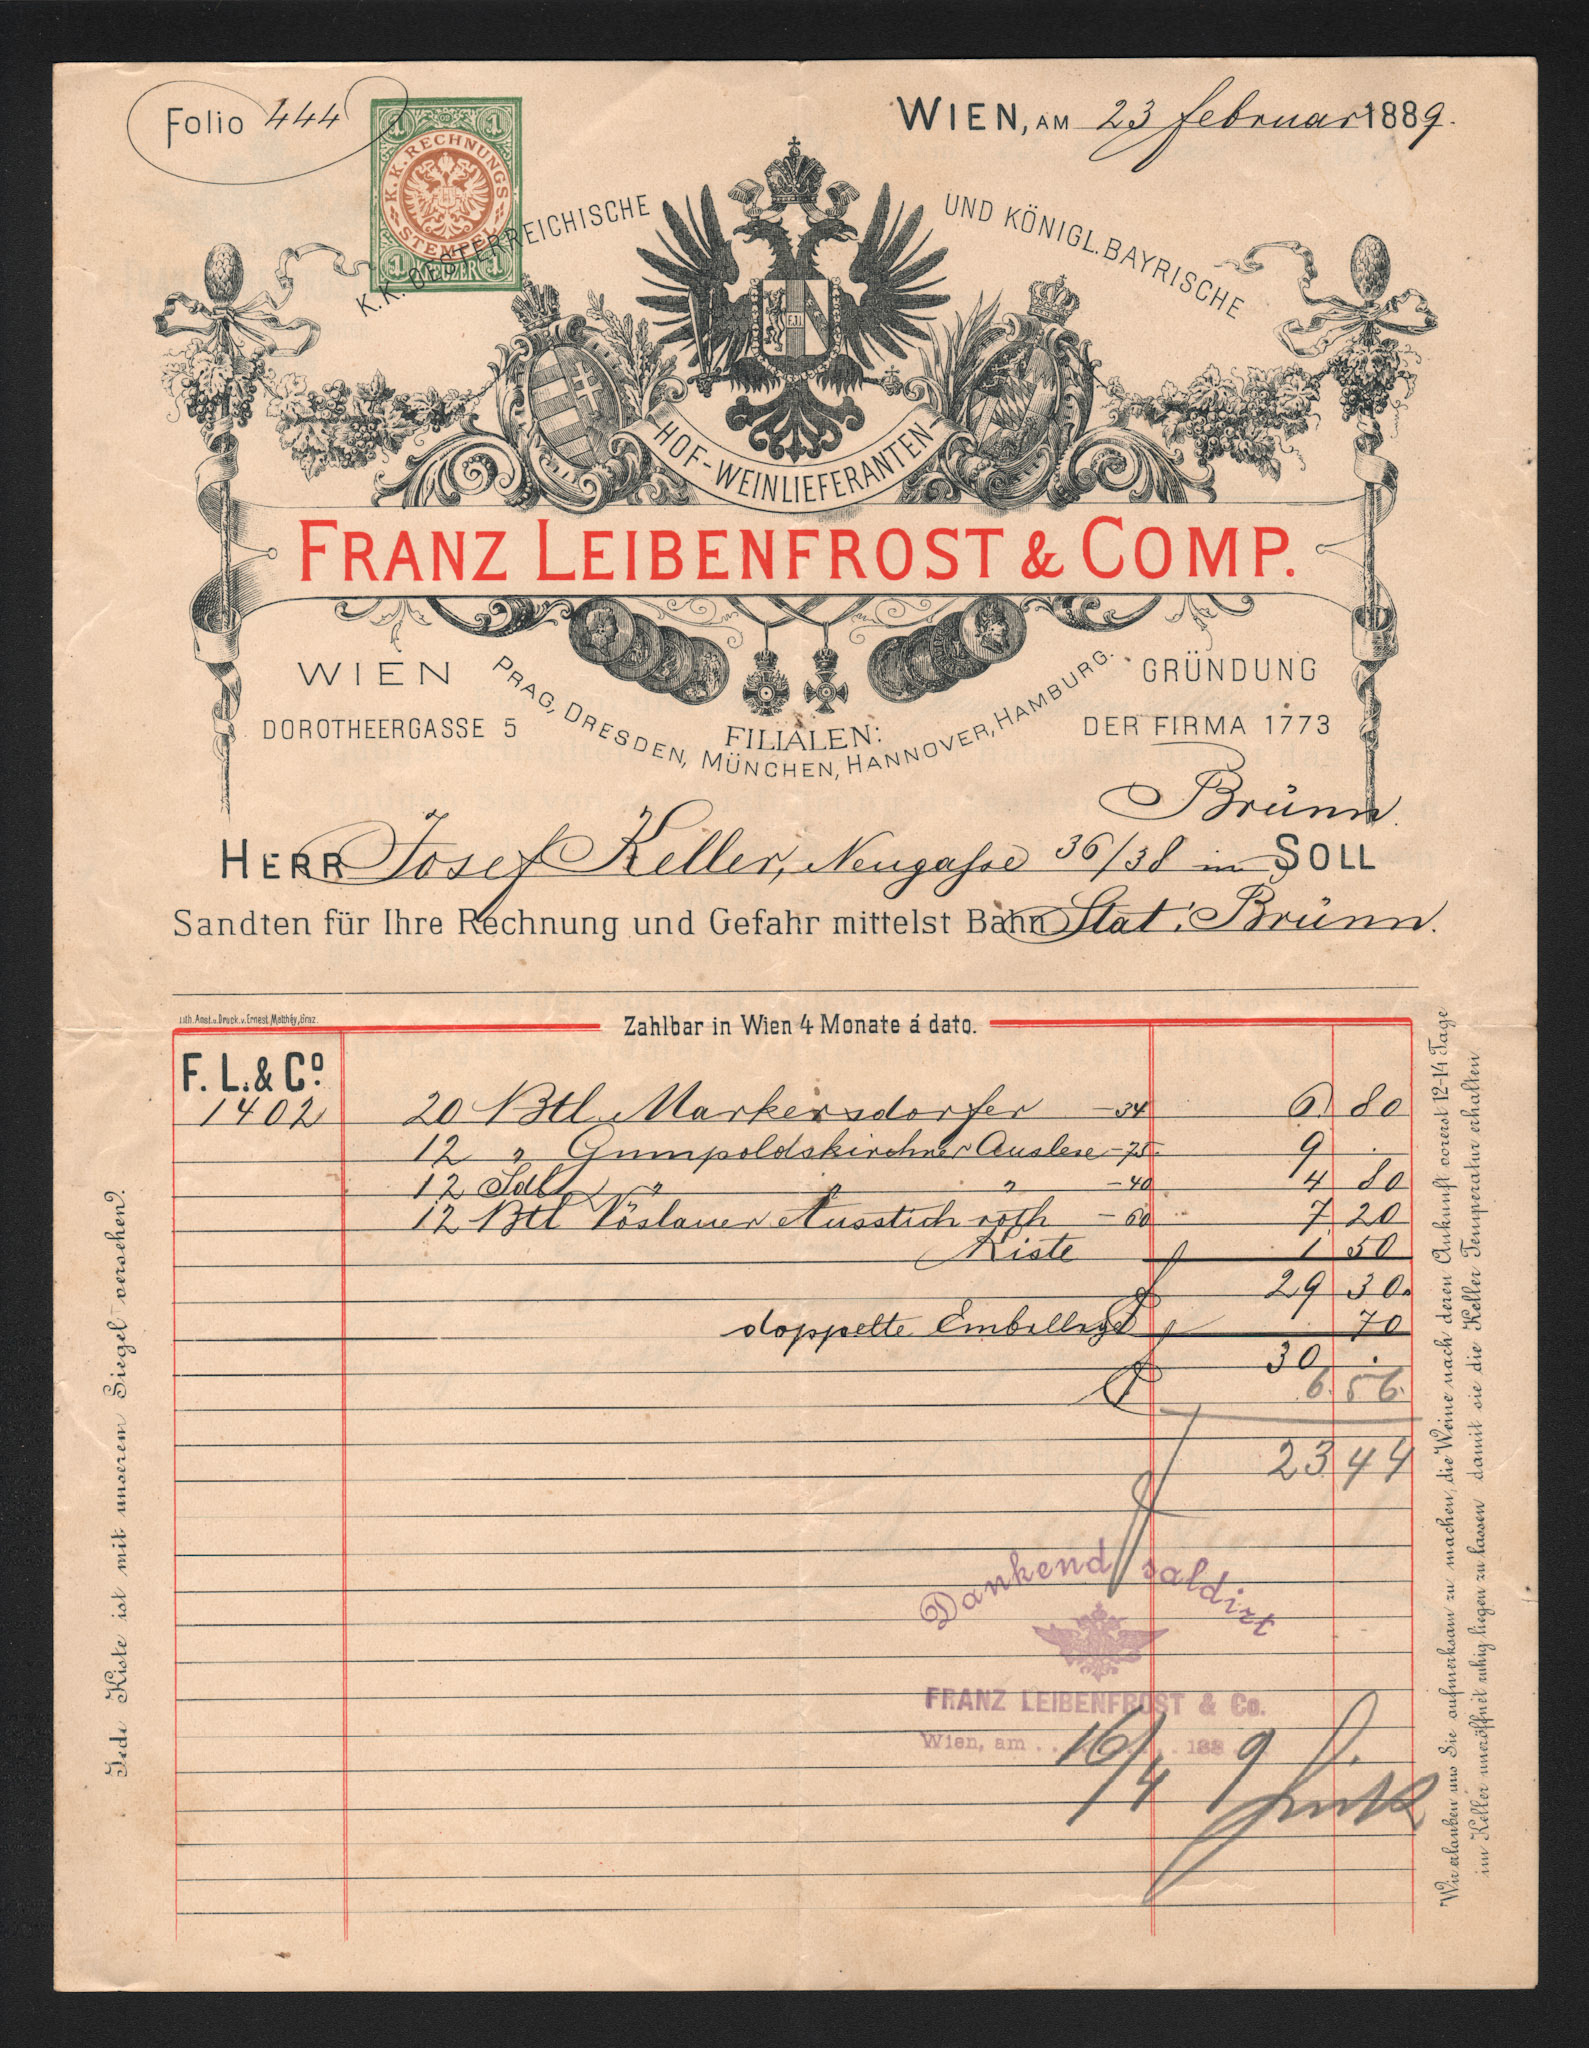 Folio 444
WIEN, AM 23 Februar 1889.
1 1
K.K. RECHNUNGS
STEMPEL
1 KREUZER 1
K.K. OESTERREICHISCHE UND KÖNIGL. BAYRISCHE
HOF-WEINLIEFERANTEN
FRANZ LEIBENFROST & COMP.
WIEN
DOROTHEERGASSE 5
FILIALEN:
PRAG, DRESDEN, MÜNCHEN, HANNOVER, HAMBURG.
GRÜNDUNG
DER FIRMA 1773
Brünn.
HERR Josef Keller, Neugasse 36/38 in SOLL
Sandten für Ihre Rechnung und Gefahr mittelst Bahn Stat. Brünn.
Lith. Anst. u. Druck. v. Ernest Matthéy, Graz.
Zahlbar in Wien 4 Monate á dato.
F. L. & Cº.
1402 20 Btl. Markersdorfer —34 6. 80
12 " Gumpoldskirchner Auslese —75. 9 .
12 Sdl " " " —40 4 80
12 Btl Vöslauer Ausstich roth —60 7 20
Kiste 1 50
29 30.
doppelte Emballage 70
30 .
6. 56.
23 44
Dankend saldirt
FRANZ LEIBENFROST & Co.
Wien, am 16/4 1889
Jede Kiste ist mit unserem Siegel versehen.
Wir erlauben uns Sie aufmerksam zu machen, die Weine nach deren Ankunft vorerst 12-14 Tage
im Keller uneröffnet ruhig liegen zu lassen damit sie die Keller Temperatur erhalten